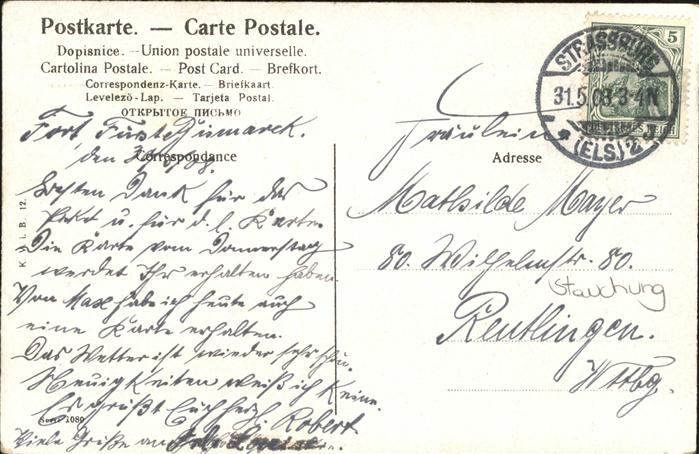 Postkarte. — Carte Postale.
Dopisnice. – Union postale universelle.
Cartolina Postale. – Post Card. – Brefkort.
Correspondenz-Karte. – Briefkaart.
Levelezö-Lap. – Tarjeta Postal.
ОТКРЫТОЕ ПИСЬМО
Correspondance
Adresse
Fort, Fürst Bismarck.
den
Besten Dank für das
Paket u. für d. l. Karte.
Die Karte vom Donnerstag
werdet Ihr erhalten haben.
Von Max habe ich heute auch
eine Karte erhalten.
Das Wetter ist wieder sehr schön.
Neuigkeiten weiß ich keine.
Es grüßt Euch herzl. Robert
Viele Grüße an
Serie 1080
5
DEUTSCHES REICH
STRASSBURG
31.5.08.3-4N
(ELS) 2
Fräulein
Mathilde Mayer
80. Wilhelmstr. 80.
Stauchung
Reutlingen.
Wttbg.